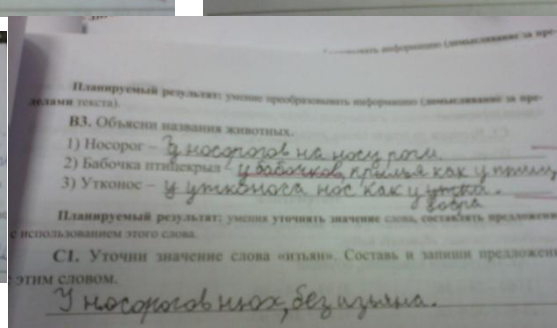 Планируемый результат: умение преобразовывать информацию (домысливание за пре-
делами текста).
В3. Объясни названия животных.
1) Носорог – У носорогов на носу роги.
2) Бабочка птицекрыл – у бабочков крылья как у птиц
3) Утконос – у утконоса нос как у утка.
бобра
Планируемый результат: умения уточнять значение слова, составлять предложен
с использованием этого слова.
С1. Уточни значение слова «изъян». Составь и запиши предложен
этим словом.
У носорогов нюх, без изъяна.